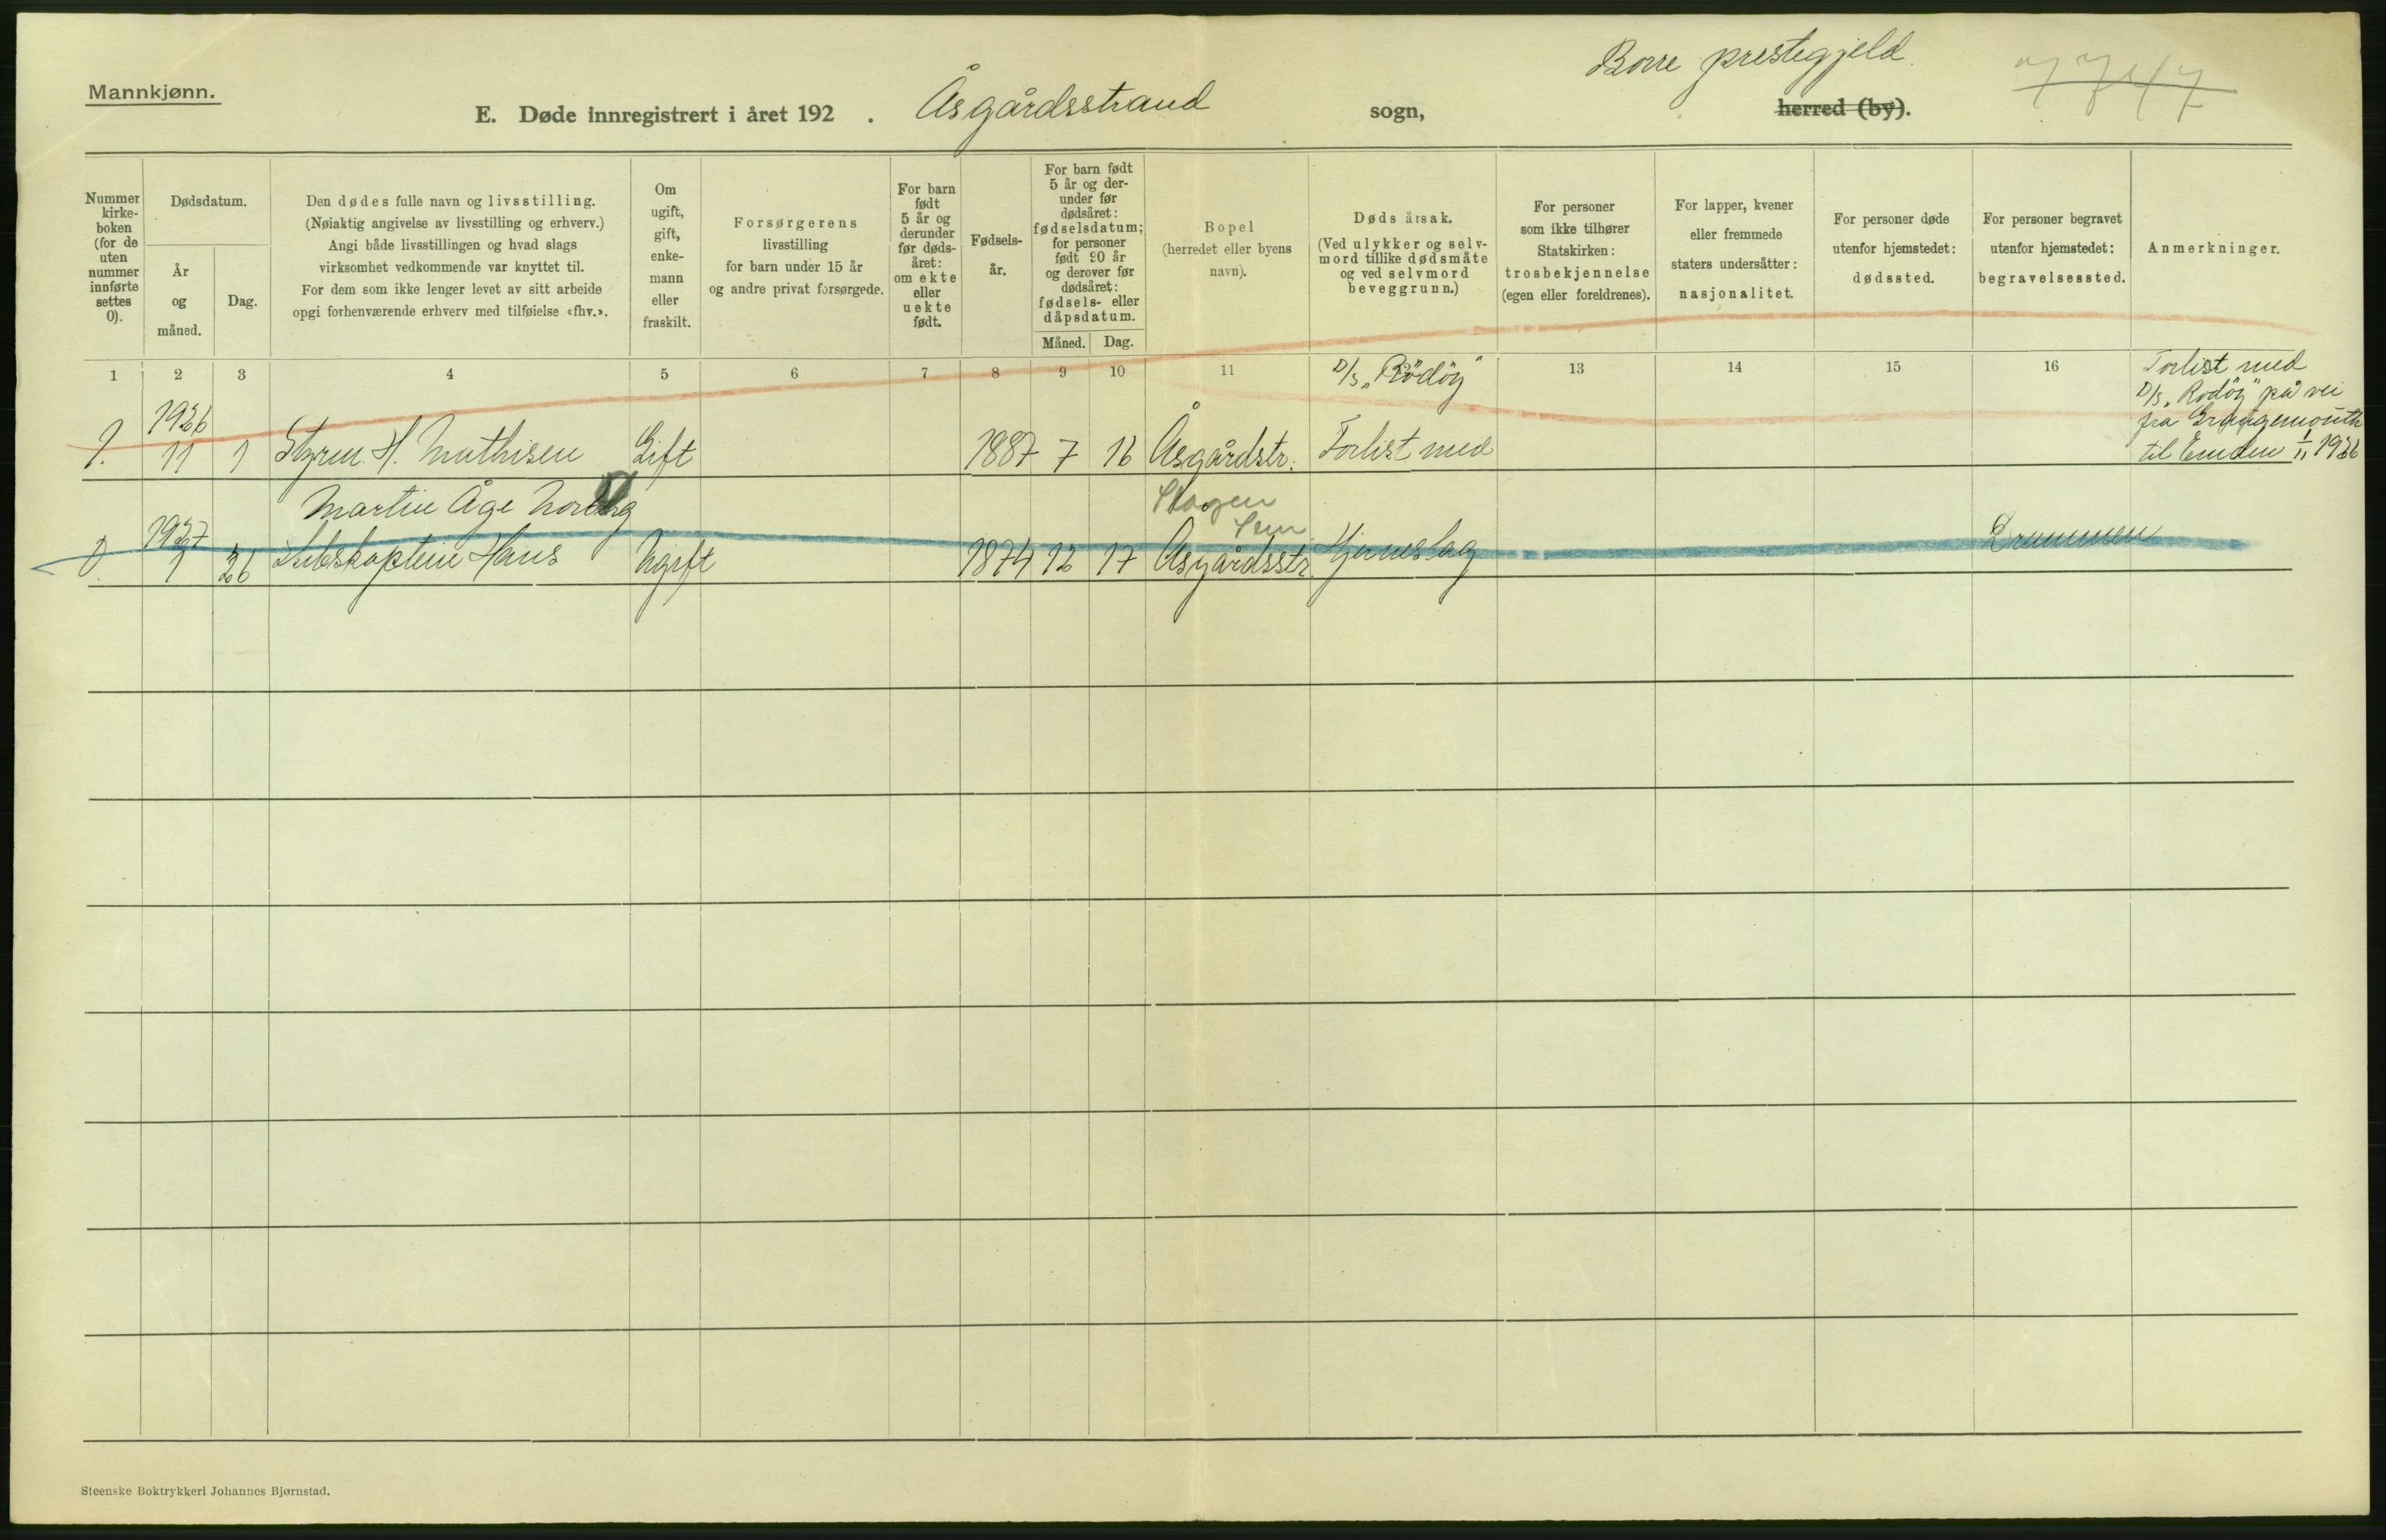 Mannkjønn.
E. Døde innregistrert i året 192 . Åsgårdsstrand sogn, Borre prestegjeld. herred (by).
Nummer kirke-boken (for de uten nummer innførte settes 0).
Dødsdatum.
År og måned.
Dag.
Den dødes fulle navn og livsstilling.
(Nøiaktig angivelse av livsstilling og erhverv.)
Angi både livsstillingen og hvad slags
virksomhet vedkommende var knyttet til.
For dem som ikke lenger levet av sitt arbeide
opgi forhenværende erhverv med tilføielse «fhv.».
Om ugift, gift, enke-mann eller fraskilt.
Forsørgerens
livsstilling
for barn under 15 år
og andre privat forsørgede.
For barn født 5 år og derunder før døds-året: om ekte eller uekte født.
Fødsels-år.
For barn født 5 år og der-under før dødsåret: fødselsdatum; for personer født 90 år og derover før dødsåret: fødsels- eller dåpsdatum.
Måned. Dag.
Bopel
(herredet eller byens navn).
Dødsårsak.
(Ved ulykker og selv-mord tillike dødsmåte og ved selvmord beveggrunn.)
For personer som ikke tilhører Statskirken: trosbekjennelse (egen eller foreldrenes).
For lapper, kvener eller fremmede staters undersåtter: nasjonalitet.
For personer døde utenfor hjemstedet: dødssted.
For personer begravet utenfor hjemstedet: begravelsessted.
Anmerkninger.
1 2 3 4 5 6 7 8 9 10 11 13 14 15 16
D/S „Rödöy"
Forlist med
D/S „Rodöy" på vei
fra Grangemouth
til Emden 1/11 1936
1936
11 1 Styrm. H. Mathisen Gift 1887 7 16 Åsgårdstr. Forlist med
Martin Åge Norberg
Slagen
Sem
1937
0 1 26 Skibskaptein Hans Ugift 1874 12 17 Åsgårdsstr. Hjerneslag Drammen
Steenske Boktrykkeri Johannes Bjørnstad.